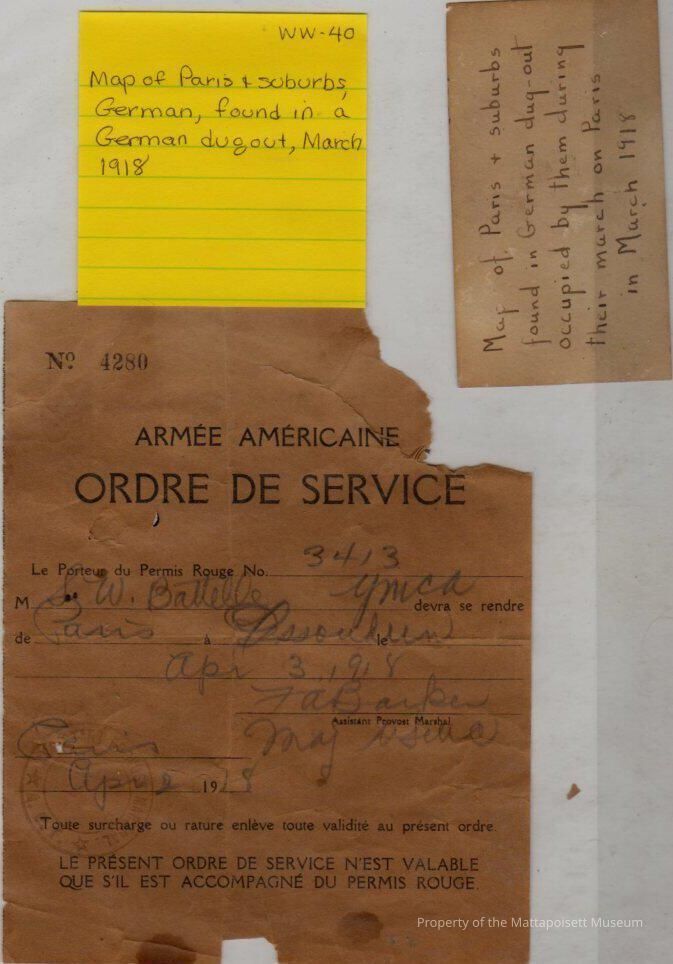 WW-40
Map of Paris & suburbs,
German, found in a
German dugout, March
1918
Map of Paris + suburbs
found in German dug-out
occupied by them during
their march on Paris
in March 1918
Nº 4280
ARMÉE AMÉRICAINE
ORDRE DE SERVICE
Le Porteur du Permis Rouge No. 3413
M W. Battelle YMCA devra se rendre
de Paris à Issoudun le
Apr 3, 1918
F A Barker
Assistant Provost Marshal
Maj
Paris
Apr 2 1918
Toute surcharge ou rature enlève toute validité au présent ordre.
LE PRÉSENT ORDRE DE SERVICE N'EST VALABLE
QUE S'IL EST ACCOMPAGNÉ DU PERMIS ROUGE.
Property of the Mattapoisett Museum